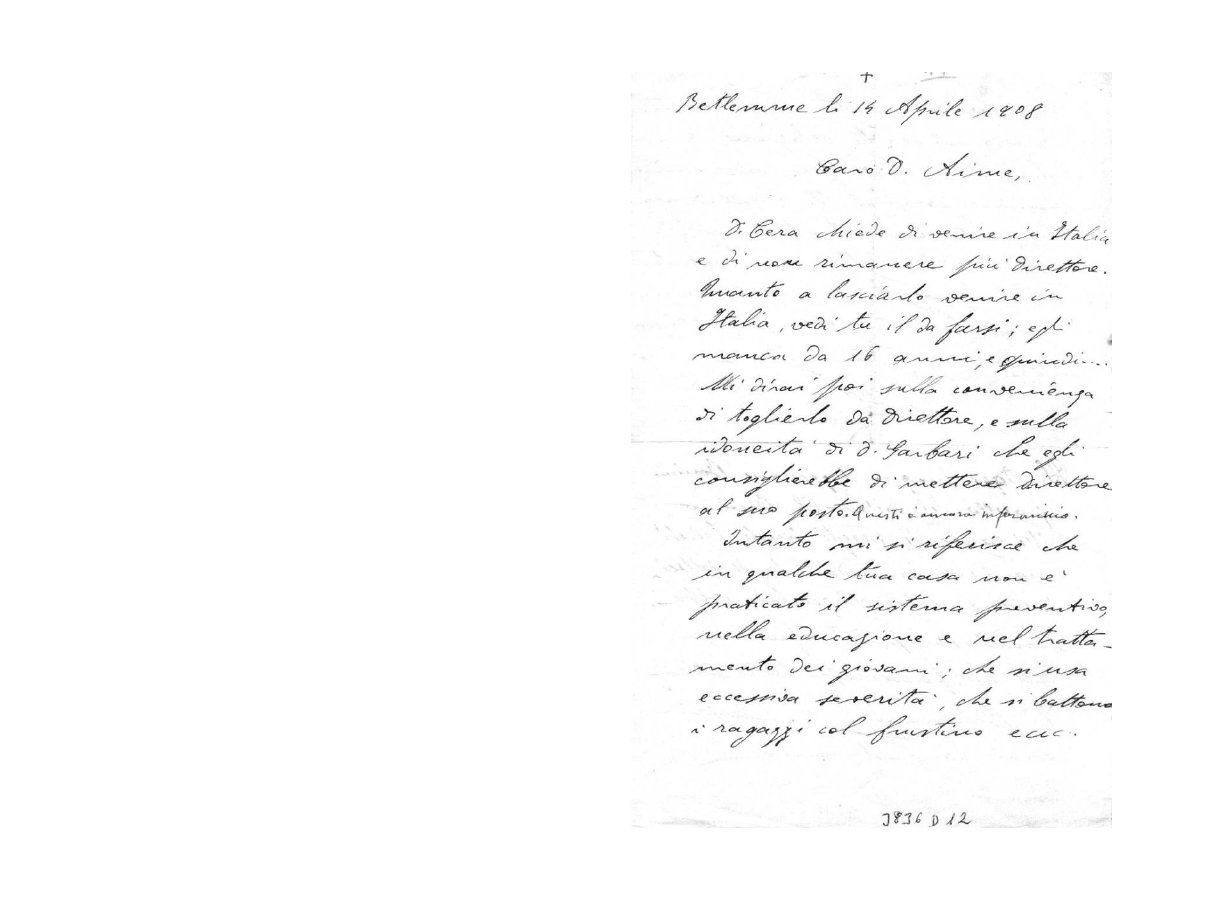 +
Betlemme li 14 Aprile 1908
Caro D. Aime,
D. Cera chiede di venire in Italia
e di non rimanere più direttore.
Quanto a lasciarlo venire in
Italia, vedi tu il da farsi; egli
manca da 16 anni, e quindi....
Mi dirai poi sulla convenienza
di toglierlo da direttore, e sulla
idoneità di D. Garbari che egli
consiglierebbe di mettere direttore
al suo posto. Questi è ancora
Intanto mi si riferisce che
in qualche tua casa non è
praticato il sistema preventivo,
nella educazione e nel tratta-
mento dei giovani; che si usa
eccessiva severità, che si battono
i ragazzi col frustino ecc.
J836 D 12